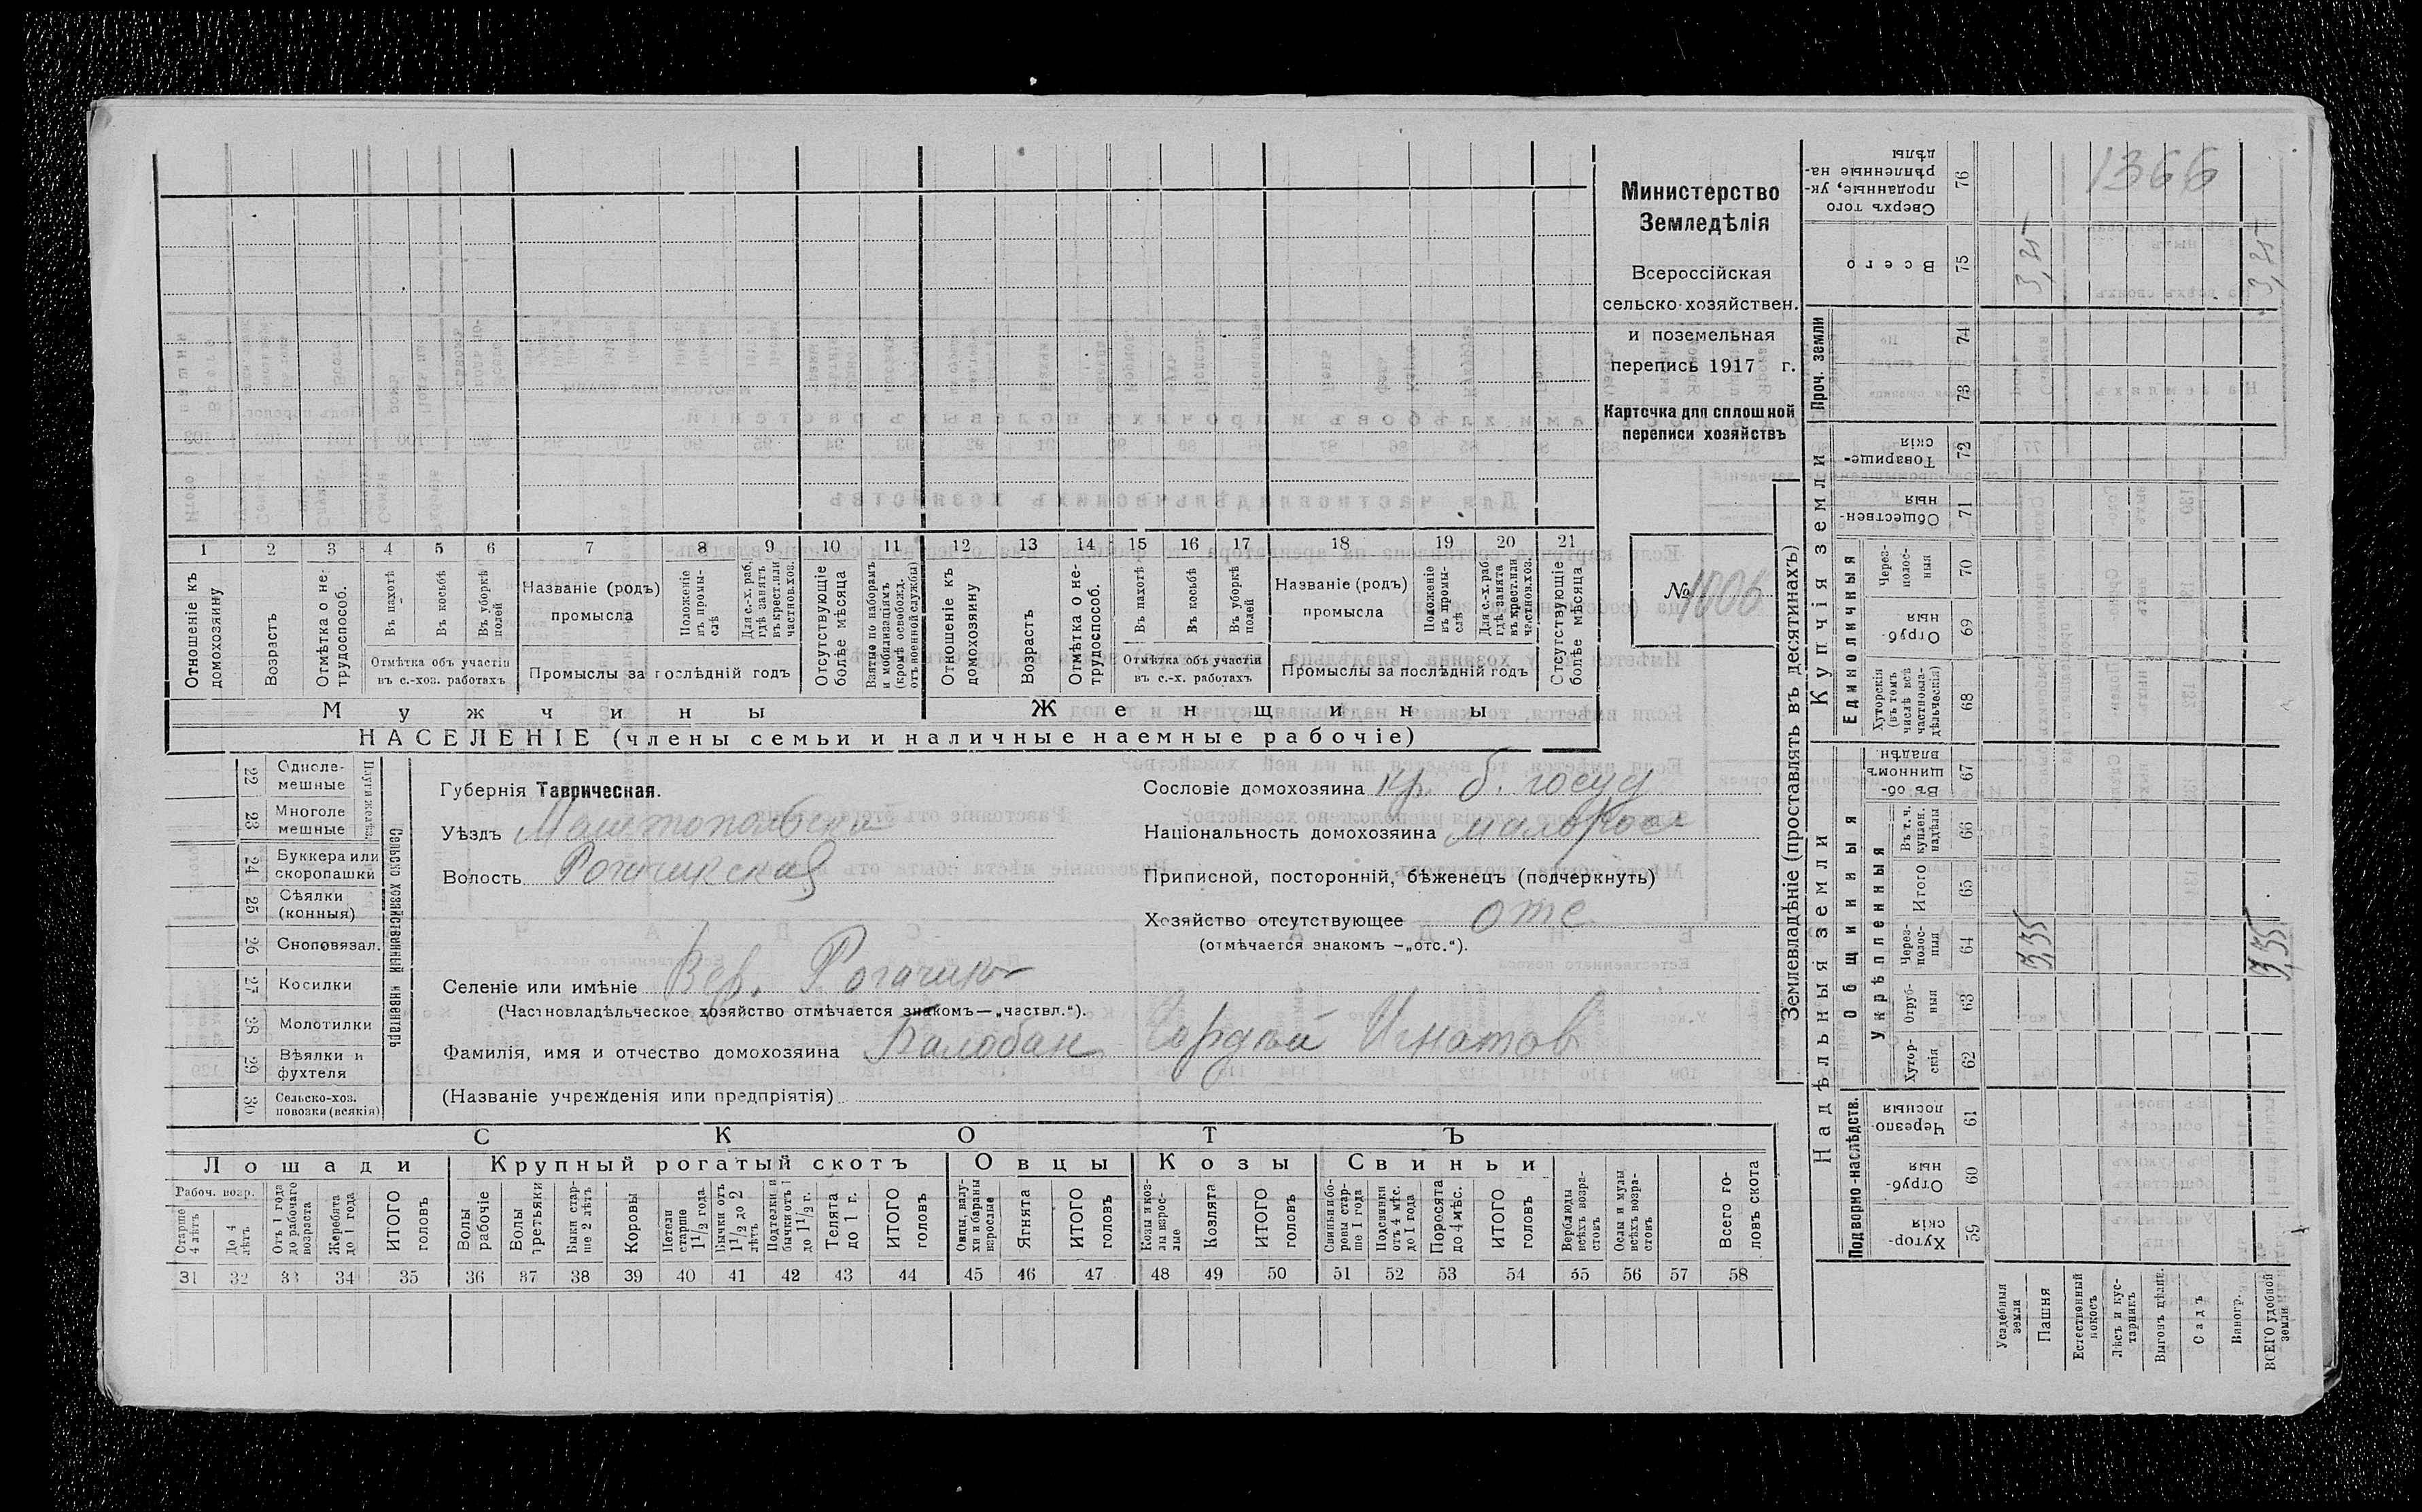 Министерство
Земледѣлія
Всероссійская
сельско-хозяйствен.
и поземельная
перепись 1917 г.
Карточка для сплошной
переписи хозяйствъ
№ 1006
1366
1 2 3 4 5 6 7 8 9 10 11 12 13 14 15 16 17 18 19 20 21
Отношеніе къ домохозяину
Возрастъ
Отмѣтка о не-трудоспособ.
Въ пахотѣ
Въ косьбѣ
Въ уборкѣ полей
Отмѣтка объ участіи
въ с.-хоз. работахъ
Названіе (родъ)
промысла
Положеніе въ промы-слѣ
Для с.-х. раб., гдѣ занятъ въ крест. или частнов. хоз.
Промыслы за послѣдній годъ
Отсутствующіе болѣе мѣсяца
Взятые по наборамъ и мобилизаціямъ (кромѣ освобожд. отъ военной службы)
Отношеніе къ домохозяину
Возрастъ
Отмѣтка о не-трудоспособ.
Въ пахотѣ
Въ косьбѣ
Въ уборкѣ полей
Отмѣтка объ участіи
въ с.-х. работахъ
Названіе (родъ)
промысла
Положеніе въ промы-слѣ
Для с.-х. раб. гдѣ занята въ крест. или частнов. хоз.
Промыслы за послѣдній годъ
Отсутствующіе болѣе мѣсяца
Мужчины
Женщины
НАСЕЛЕНІЕ (члены семьи и наличные наемные рабочіе)
22 Одноле-мешные
23 Многоле мешные
24 Буккера или скоропашки
25 Сѣялки (конныя)
26 Сноповязал.
27 Косилки
28 Молотилки
29 Вѣялки и фухтеля
30 Сельско-хоз. повозки (всякія)
Сельско хозяйственный инвентарь
Губернія Таврическая.
Уѣздъ Мелитопольскій
Волость Рогачикская
Сословіе домохозяина кр. б. госуд
Національность домохозяина малорос
Приписной, посторонній, бѣженецъ (подчеркнуть)
Хозяйство отсутствующее отс
(отмѣчается знакомъ —„отс.“).
Селеніе или имѣніе Вер. Рогачикъ
(Частновладѣльческое хозяйство отмѣчается знакомъ—„частвл.“).
Фамилія, имя и отчество домохозяина Балобан Гордѣй Игнатов
(Названіе учрежденія или предпріятія)
СКОТЪ
Лошади Крупный рогатый скотъ Овцы Козы Свиньи
Рабоч. возр.
Старше 4 лѣтъ
До 4 лѣтъ
Отъ 1 года до рабочаго возраста
Жеребята до 1 года
ИТОГО головъ
Волы рабочіе
Волы третьяки
Быки стар-ше 2 лѣтъ
Коровы
Нетели старше 1 1/2 года
Бычки отъ 1 1/2 до 2 лѣтъ
Подтелки и бычки отъ 1 до 1 1/2 г.
Телята до 1 г.
ИТОГО головъ
Овцы, валу-хи и бараны взрослые
Ягнята
ИТОГО головъ
Козы и коз-лы взрос-лые
Козлята
ИТОГО головъ
Свиньи и бо-ровы стар-ше 1 года
Подсвинки отъ 4 мѣс. до 1 года
Поросята до 4 мѣс.
ИТОГО головъ
Верблюды всѣхъ возра-стовъ
Ослы и мулы всѣхъ возра-стовъ
Всего го-ловъ скота
31 32 33 34 35 36 37 38 39 40 41 42 43 44 45 46 47 48 49 50 51 52 53 54 55 56 57 58
Землевладѣніе (проставлять въ десятинахъ)
Надѣльныя земли
Купчія земли
Проч. земли
Подворно-наслѣдств.
Общинныя
Укрѣпленныя
Единоличныя
Сверхъ того проданные, ук-рѣпленные на-дѣлы 76
Всего 75
74
73
Товарище-скія 72
Обществен-ныя 71
Через-полос-ныя 70
Отруб-ныя 69
Хуторскія (въ томъ числѣ всѣ частновла-дѣльческія) 68
Въ об-щинномъ владѣн. 67
Въ т. ч. купчен. надѣлы 66
Итого 65
Через-полос-ныя 64
Отруб-ныя 63
Хутор-скія 62
Черезпо-лосныя 61
Отруб-ныя 60
Хутор-скія 59
Усадебныя земли
Пашня
Естественный покосъ
Лѣсъ и кус-тарникъ
Выгонъ цѣлин.
Садъ
Виногр.
ВСЕГО удобной земли
3,35
3,35